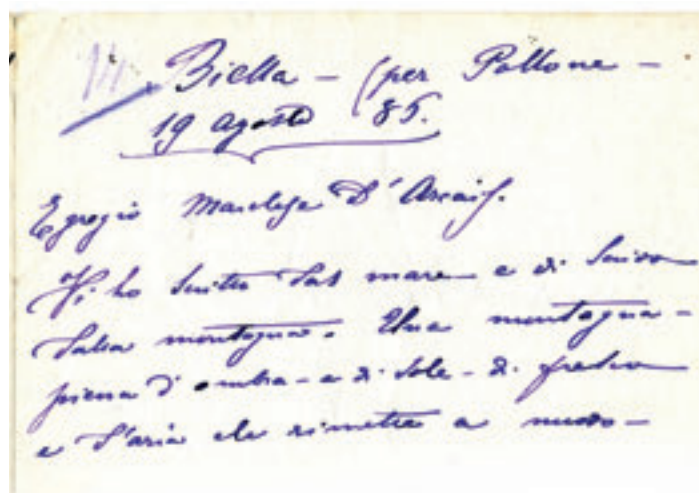 14
Biella - (per Pollone -
19 agosto 85.
Egregio Marchese D'Arcais.
Vi ho scritto dal mare e vi scrivo
dalla montagna. Una montagna -
piena d'ombra - e di sole - di fresco
e d'aria che rimette a nuovo -